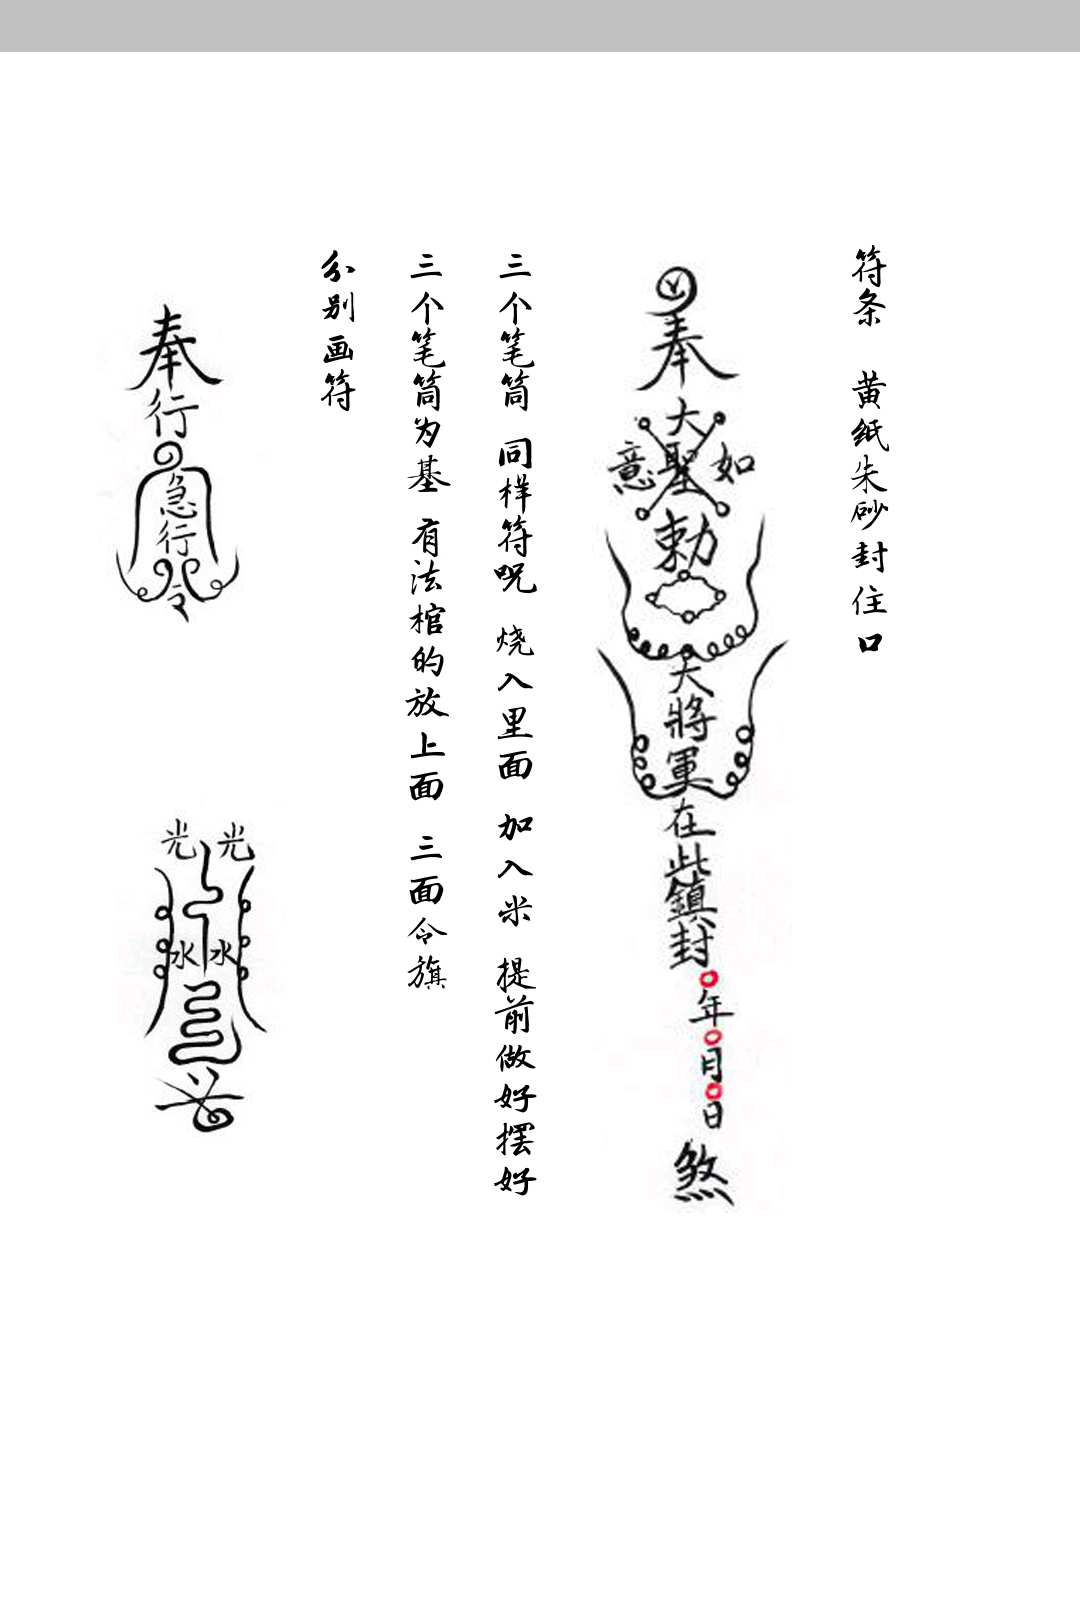 符条 黄纸朱砂封住口
奉
大聖
如意
勅
大將軍在此鎮封
○年○月○日
煞
三个笔筒 同样符呪 烧入里面 加入米 提前做好摆好
三个笔筒为基 有法棺的放上面 三面令旗
分别画符
奉行
急行令
光光
水水